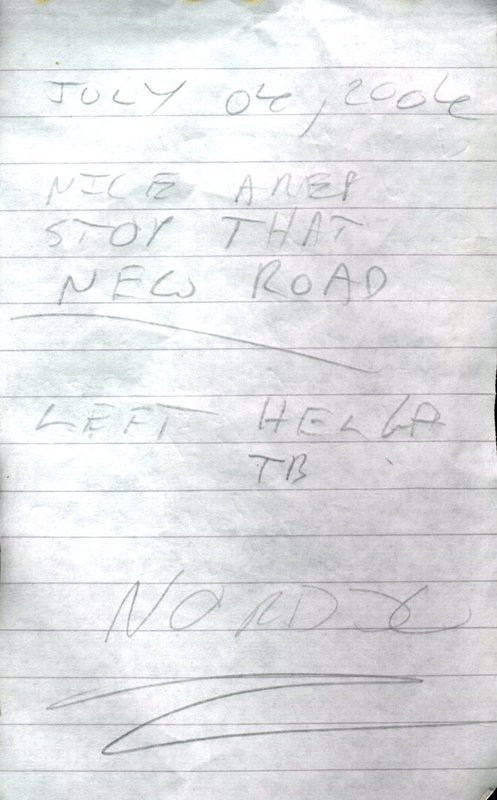 JULY 04, 2004
NICE AREA
STOP THAT
NEW ROAD
LEFT HELGA
TB